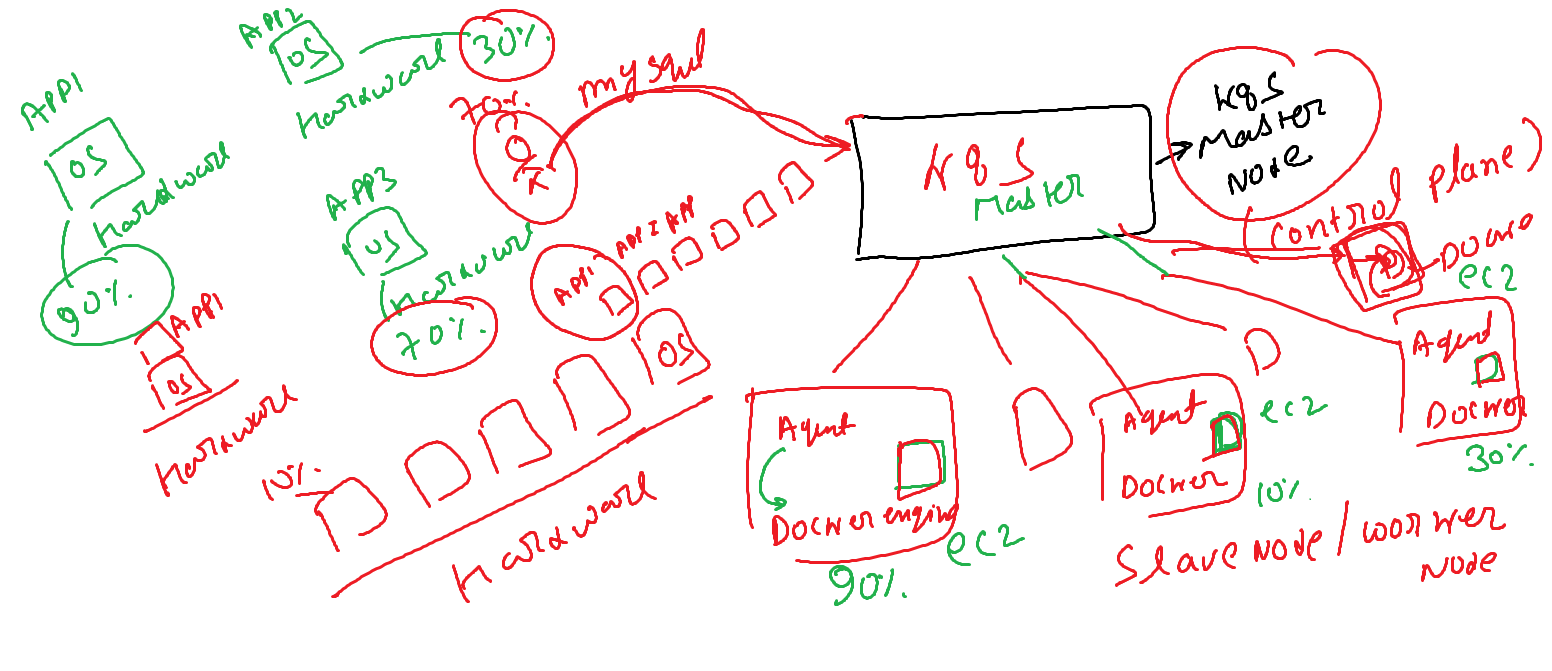 APP2
OS
30%.
Hardware
mysqul
70%.
APP1
OS
Hardware
90%.
APP3
OS
Hardware
70%.
APP1
OS
Hardware
APP1 APP2 APP
OS
10%.
Hardware
K8S
Master
K8S
Master
Node
(control plane)
Docke
ec2
Agent
Docker engine
ec2
90%.
Agent
Docker
ec2
10%.
Agent
Docker
30%.
Slave Node / worker
Node